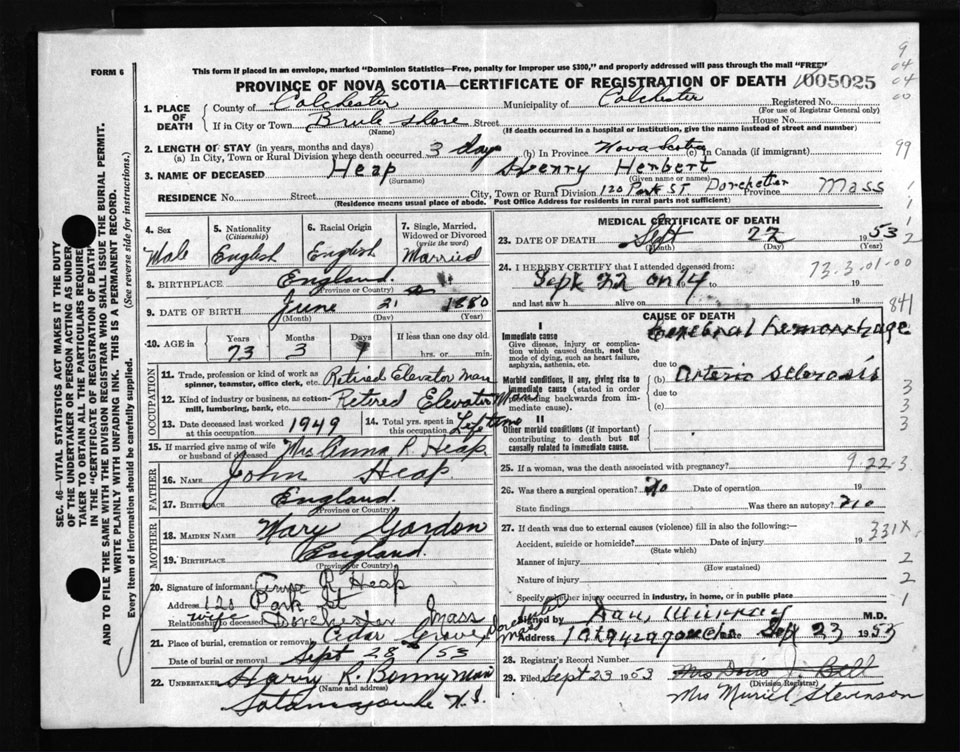 FORM 6
This form if placed in an envelope, marked "Dominion Statistics—Free, penalty for improper use $300," and properly addressed will pass through the mail "FREE"
PROVINCE OF NOVA SCOTIA—CERTIFICATE OF REGISTRATION OF DEATH 005025
9
04
04
00
1. PLACE OF DEATH County of Colchester Municipality of Colchester Registered No.
(For use of Registrar General only)
If in City or Town Brule Shore Street House No.
(Name) (If death occurred in a hospital or institution, give the name instead of street and number)
2. LENGTH OF STAY (in years, months and days)
(a) In City, Town or Rural Division where death occurred 3 days (b) In Province Nova Scotia (c) In Canada (if immigrant) 99
3. NAME OF DECEASED Heap Henry Herbert
(Surname) (Given name or names)
RESIDENCE No. Street City, Town or Rural Division 120 Park St Dorchester Province Mass
(Residence means usual place of abode. Post Office Address for residents in rural parts not sufficient)
4. Sex Male
5. Nationality (Citizenship) English
6. Racial Origin English
7. Single, Married, Widowed or Divorced (write the word) Married
8. BIRTHPLACE England
(Province or Country)
9. DATE OF BIRTH June 21 1880
(Month) (Day) (Year)
10. AGE in Years 73 Months 3 Days 1 If less than one day old hrs. or min.
OCCUPATION
11. Trade, profession or kind of work as spinner, teamster, office clerk, etc. Retired Elevator man
12. Kind of industry or business, as cotton-mill, lumbering, bank, etc. Retired Elevator Man
13. Date deceased last worked at this occupation 1949
14. Total yrs. spent in this occupation Lifetime
15. If married give name of wife or husband of deceased Mrs Anna R Heap
FATHER
16. NAME John Heap
17. BIRTHPLACE England
(Province or Country)
MOTHER
18. MAIDEN NAME Mary Gordon
19. BIRTHPLACE England
(Province or Country)
20. Signature of informant R Heap
Address 120 Park St
Relationship to deceased wife Dorchester Mass
21. Place of burial, cremation or removal Cedar Grove Dorchester Mass
Date of burial or removal Sept 28th/53
22. UNDERTAKER Harry R. Bonnyman
(Name and address)
Tatamagouche N.S.
MEDICAL CERTIFICATE OF DEATH
23. DATE OF DEATH Sept 22 1953
(Month) (Day) (Year)
2
24. I HEREBY CERTIFY that I attended deceased from: 73-3-01-00
Sept 22 on 19 to 19
and last saw h alive on 19
841
CAUSE OF DEATH
I
Immediate cause
Give disease, injury or complication which caused death, not the mode of dying, such as heart failure, asphyxia, asthenia, etc.
Cerebral hemorrhage
due to
Morbid conditions, if any, giving rise to immediate cause (stated in order proceeding backwards from immediate cause).
(b) Arterio sclerosis 3
due to 3
(c) 3
II
Other morbid conditions (if important) contributing to death but not causally related to immediate cause.
25. If a woman, was the death associated with pregnancy? 9-22-3
26. Was there a surgical operation? no Date of operation 19
State findings Was there an autopsy? no
27. If death was due to external causes (violence) fill in also the following:— 331X
Accident, suicide or homicide? Date of injury 19
(State which)
Manner of injury 2
(How sustained)
Nature of injury 2
Specify whether injury occurred in industry, in home, or in public place 1
Signed by Dan Murray M.D.
Address Tatamagouche Date Sept 23 1953
28. Registrar's Record Number
29. Filed Sept 23 1953 Mrs J. Bell
(Division Registrar)
Mrs Muriel Stevenson
SEC. 46—VITAL STATISTICS ACT MAKES IT THE DUTY
OF THE UNDERTAKER OR PERSON ACTING AS UNDER-
TAKER TO OBTAIN ALL THE PARTICULARS REQUIRED
IN THE "CERTIFICATE OF REGISTRATION OF DEATH"
AND TO FILE THE SAME WITH THE DIVISION REGISTRAR WHO SHALL ISSUE THE BURIAL PERMIT.
WRITE PLAINLY WITH UNFADING INK. THIS IS A PERMANENT RECORD.
Every item of information should be carefully supplied. (See reverse side for instructions.)